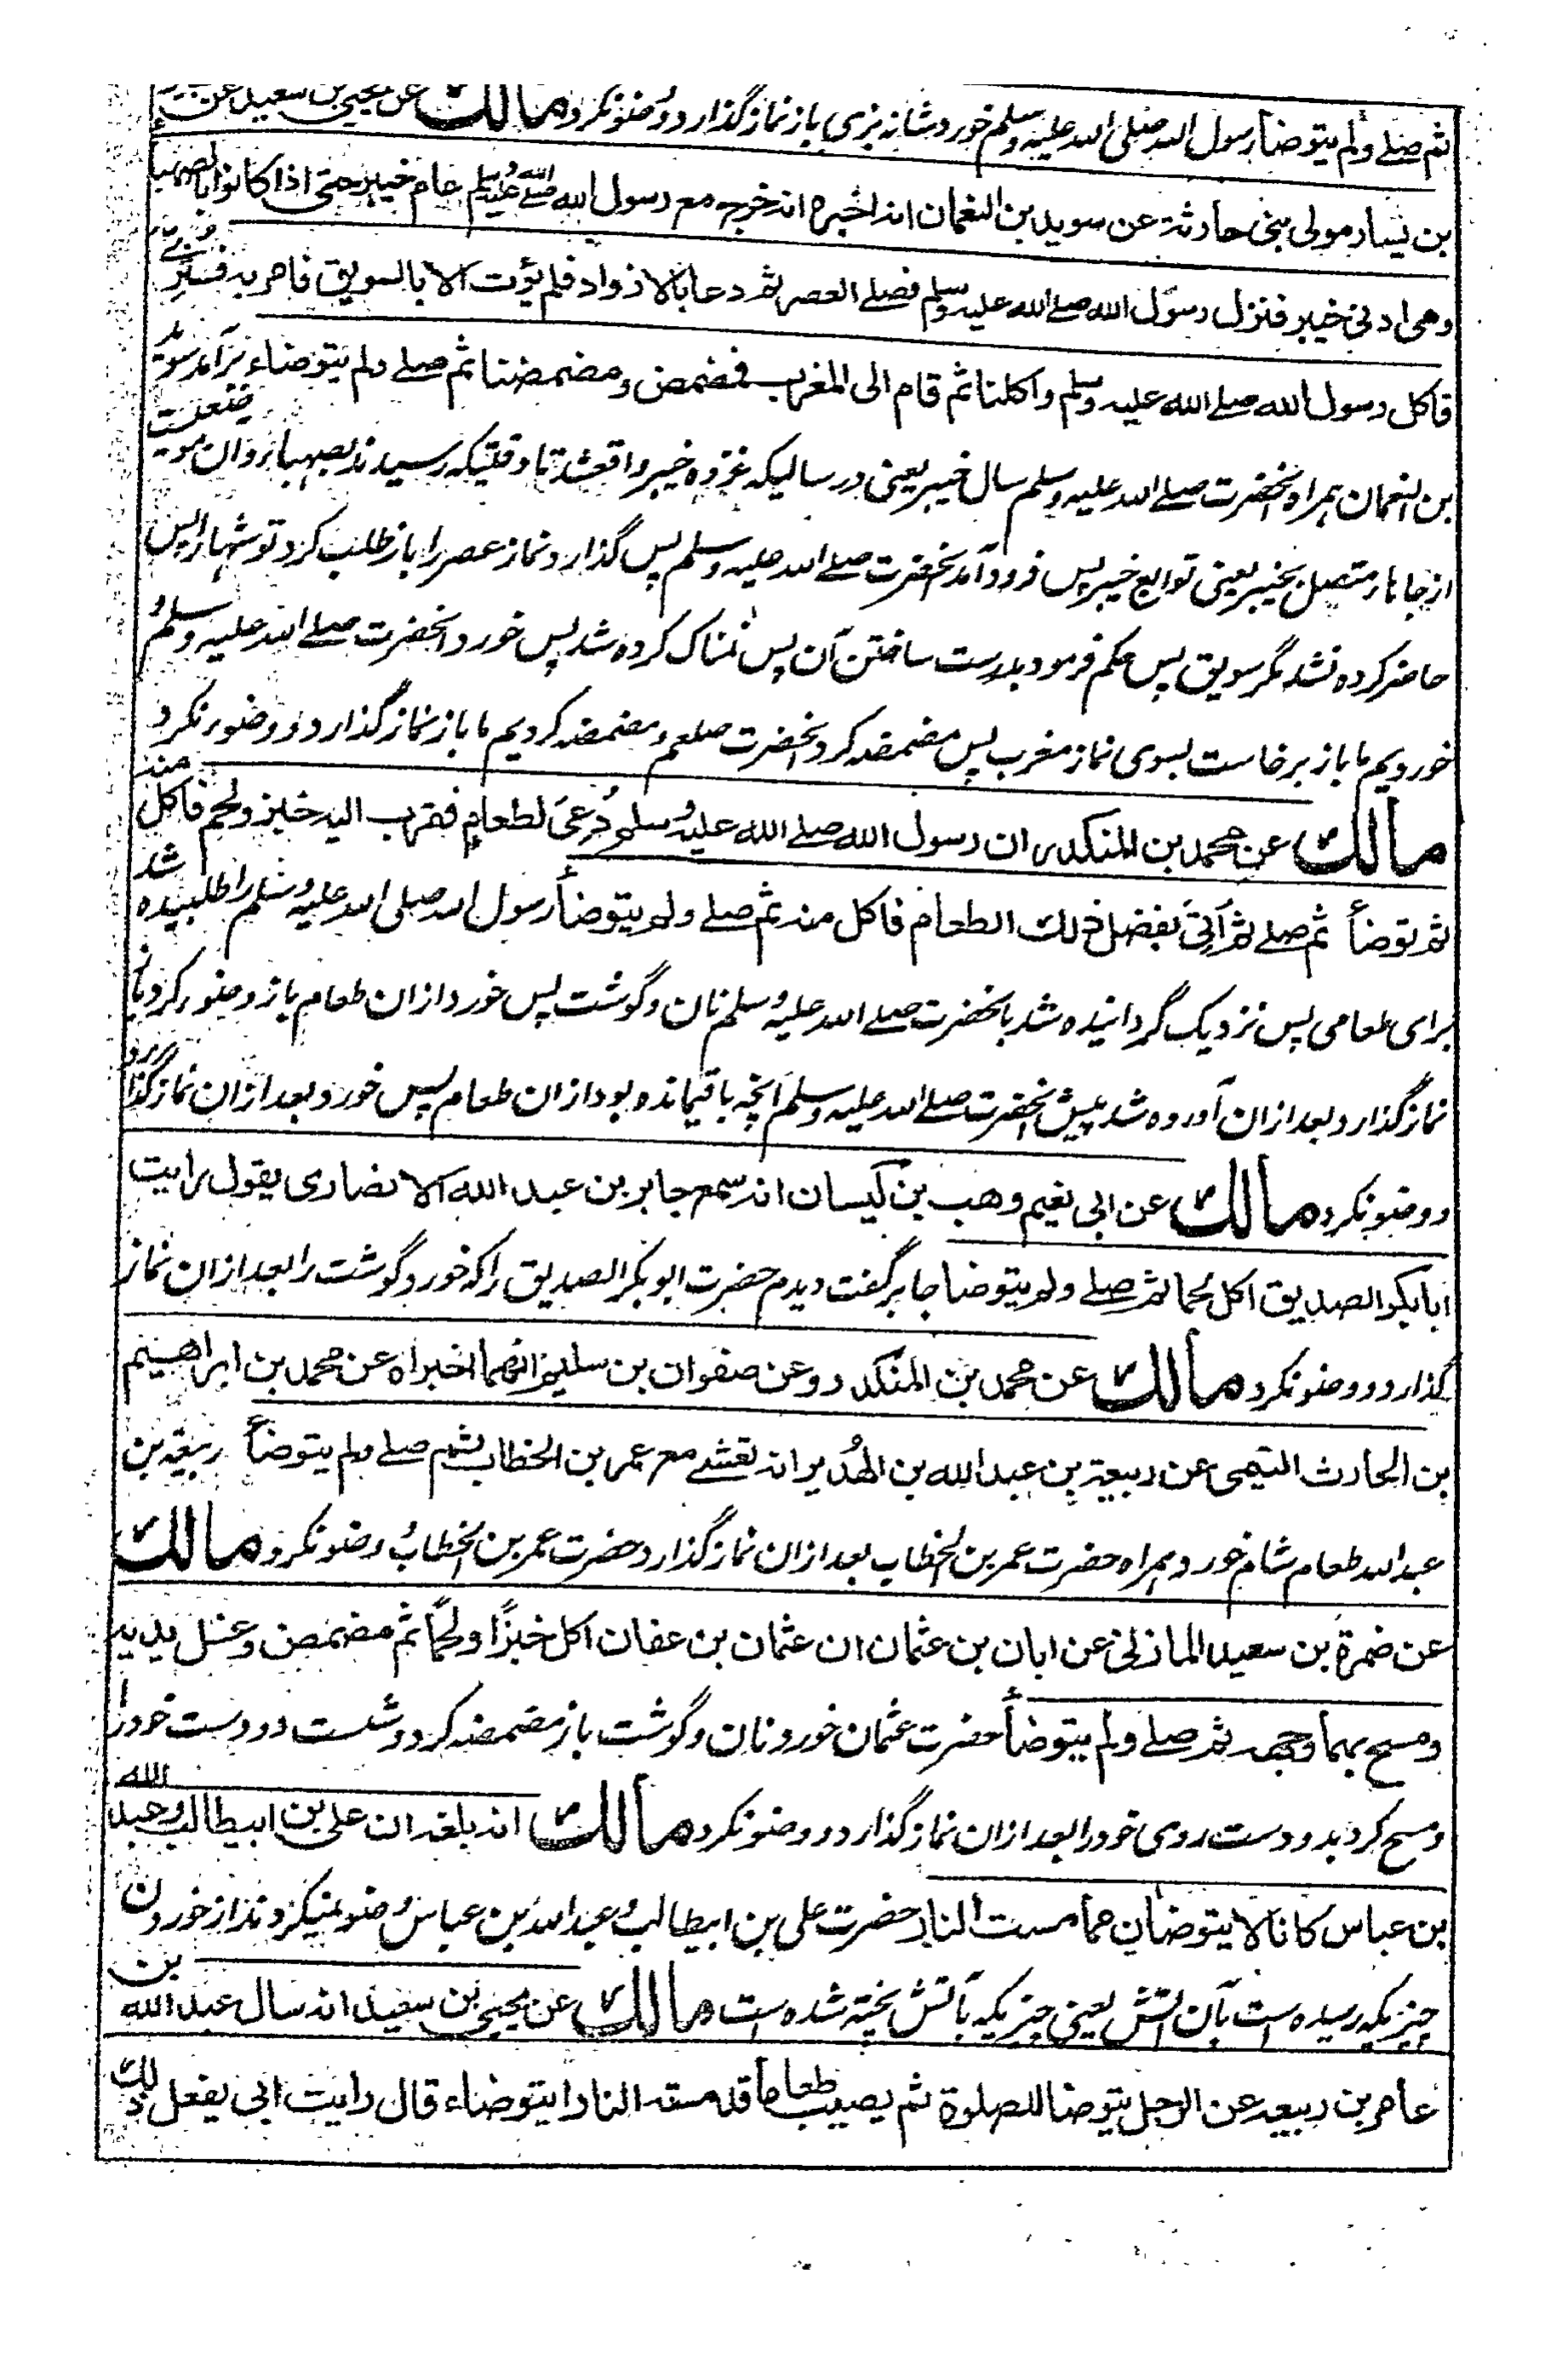 ثم صلے ولم يتوضأ رسول اللہ صلی اللہ علیہ وسلم خورد شانہ بزی باز نماز گذارد و وضو نکرد مالك عن يحيى بن سعيد عن بشير
بن يسار مولى بني حارثة عن سويد بن النعمان انه اخبره انه خرج مع رسول الله صلے الله علیه وسلم عام خيبر حتى اذا كانوا بالصهباء
وهى ادنى خيبر فنزل رسول الله صلے الله عليه وسلم فصلے العصر ثم دعا بالازواد فلم يؤت الا بالسويق فامر به فثرى
فاكل رسول الله صلے الله عليه وسلم واكلنا ثم قام الى المغرب فمضمض ومضمضنا ثم صلے ولم يتوضاء برآمد سوید
بن النعمان ہمراہ آنحضرت صلے اللہ علیہ وسلم سال خیبر یعنی در سالیکہ غزوہ خیبر واقع شد تا وقتیکہ رسیدند بصہبا و آن موضعیست
از جاہا متصل بخیبر یعنی توابع خیبر پس فرود آمد آنحضرت صلے اللہ علیہ وسلم پس گذارد نماز عصر را باز طلب کرد توشہا را پس
حاضر کردہ نشد مگر سویق پس حکم فرمود بدرست ساختن آن پس نمناک کردہ شد پس خورد آنحضرت صلے اللہ علیہ وسلم و
خوردیم ما باز برخاست بسوی نماز مغرب پس مضمضہ کرد آنحضرت صلعم و مضمضہ کردیم ما باز نماز گذارد و وضو نکرد
مالك عن محمد بن المنكدر ان رسول الله صلے الله عليه وسلم دُعِيَ لطعام فقرب اليه خبز ولحم فاكل منه
ثم توضأ ثم صلے ثم اُتِيَ بفضل ذلك الطعام فاكل منه ثم صلے ولم يتوضأ رسول اللہ صلی اللہ علیہ وسلم را طلبیدہ شد
برای طعامی پس نزدیک گردانیدہ شد بآنحضرت صلے اللہ علیہ وسلم نان و گوشت پس خورد ازان طعام باز وضو کرد باز
نماز گذارد بعد ازان آوردہ شد پیش آنحضرت صلے اللہ علیہ وسلم آنچہ باقیماندہ بود ازان طعام پس خورد بعد ازان نماز گذارد
و وضو نکرد مالك عن ابى نعيم وهب بن كيسان انه سمع جابر بن عبد الله الانصارى يقول رايت
ابابكر الصديق اكل لحما ثم صلے ولم يتوضا جابر گفت دیدم حضرت ابوبکر الصدیق را کہ خورد گوشت را بعد ازان نماز
گذارد و وضو نکرد مالك عن محمد بن المنكدر وعن صفوان بن سليم انهما اخبراه عن محمد بن ابراهيم
بن الحارث التيمى عن ربيعة بن عبد الله بن الهُدير انه تعشے مع عمر بن الخطاب ثم صلے ولم يتوضأ ربیعہ بن
عبد اللہ طعام شام خورد ہمراہ حضرت عمر بن الخطاب بعد ازان نماز گذارد حضرت عمر بن الخطاب و وضو نکرد مالك
عن ضمرة بن سعيد المازنى عن ابان بن عثمان ان عثمان بن عفان اكل خبزًا ولحمًا ثم مضمض وغسل يديه
ومسح بهما وجهه ثم صلے ولم يتوضأ حضرت عثمان خورد نان و گوشت باز مضمضہ کرد و شست دو دست خود را
و مسح کرد بدو دست روی خود را بعد ازان نماز گذارد و وضو نکرد مالك انه بلغه ان على بن ابيطالب وعبد الله
بن عباس كانا لا يتوضأن مما مست النار حضرت علی بن ابیطالب و عبد اللہ بن عباس وضو نمیکردند از خوردن
چیزیکہ رسیدہ است بآن آتش یعنی چیزیکہ بآتش پختہ شدہ است مالك عن يحيى بن سعيد انه سال عبد الله بن
عامر بن ربيعه عن الرجل يتوضا للصلوة ثم يصيب طعاما قد مسته النار ايتوضاء قال رايت ابى يفعل ذلك